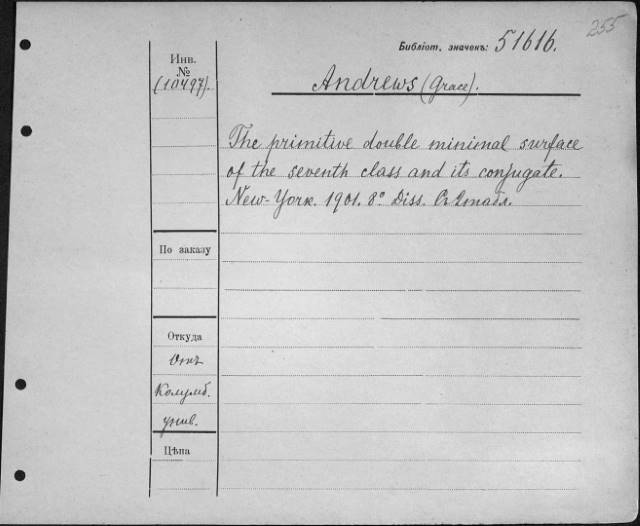 255
Библіот. значенъ: 51616.
Инв.
№
(10497).
Andrews (Grace).
The primitive double minimal surface
of the seventh class and its conjugate.
New-York. 1901. 8° Diss. Съ 1 табл.
По заказу
Откуда
Отъ
Колумб.
унив.
Цѣна